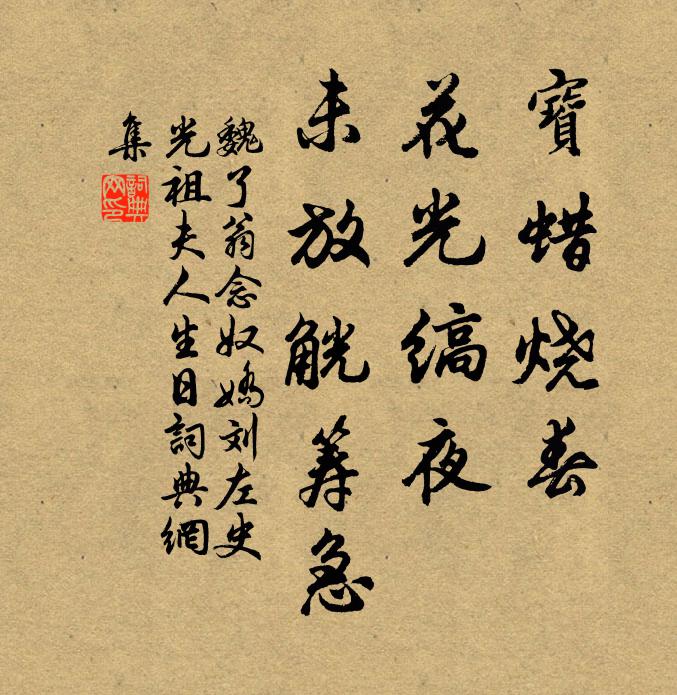 寶蜡烧春
花光缟夜
未放觥筹急
魏了翁念奴嬌刘左史
光祖夫人生日詞典網
集
詞典
网印